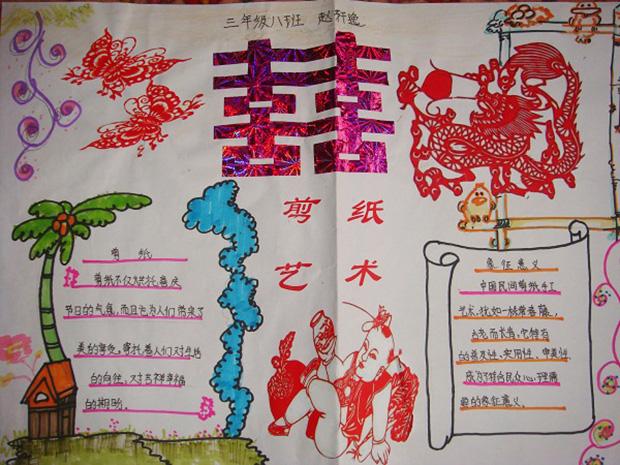 三年级八班 赵轩逸
囍
剪纸
艺术
剪纸
剪纸不仅烘托喜庆
节日的气氛,而且也为人们带来了
美的享受,寄托着人们对生活
的向往,对吉祥幸福
的期盼。
象征意义
中国民间剪纸手工
艺术,犹如一株常春藤,
古老而长青,它特有
的普及性、实用性、审美性
成为了符合民众心理需
要的象征意义。